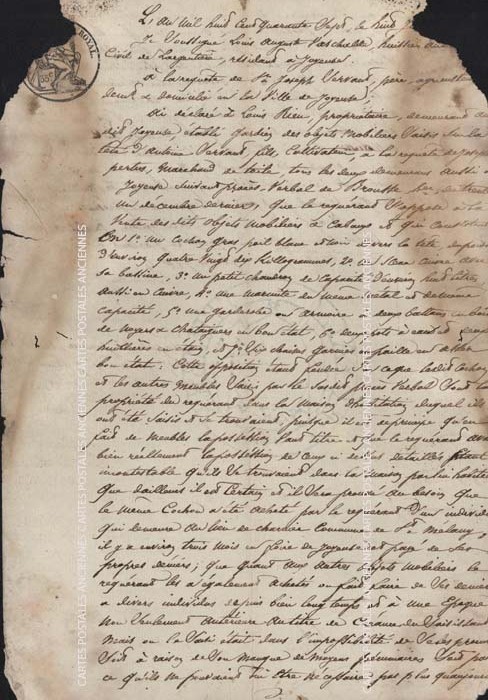 L'an mil huit cent quarante Sept, le huit
Je Soussigné Louis Auguste Paschalde, huissier au
Civil de Largentière, résidant à Joyeuse.
à la requête de Sr Joseph Vervant, père, agriculteur
demt & domicilié en la Ville de Joyeuse;
ai déclaré à Louis Rieu, propriétaire, demeurant au
dit Joyeuse établi gardien des objets mobiliers saisis sur la
tête d'Antoine Vervant, fils, Cultivateur, à la requête de Joseph
pertus, Marchand de toile, tous les deux demeurans aussi à
Joyeuse suivant procès Verbal de Brousse
un décembre dernier, que le requérant s'oppose à la
Vente des dits objets mobiliers & qui consistent
en 1° un Cochon gras poil blanc & noir vers la tête, du poids
d'environ quatre Vingt dix Killogrammes, 2° un Seau cuivre avec
sa bassine, 3° un petit chaudron de capacité d'environ huit litres
aussi en Cuivre, 4° une marmite du même métal et de même
capacité, 5° une garderobe ou armoire à deux battans en bois
de noyer & chataigniers en bon état, 6° deux pots à eau et deux
huilières en étain, et 7° Six chaises garnies en paille en assez
bon état; Cette opposition étant fondée sur ce que ledit Cochon
et les autres meubles Saisis par le susdit procès Verbal Sont la
propriété du requérant dans la maison d'habitation duquel ils
ont été Saisis et se trouvaient, puisque il est de principe qu'en
fait de meubles la possession Vaut titre et que le requérant avait
bien réellement la possession de ceux ci dessus détaillés étant
incontestable qu'ils se trouvaient dans la maison par lui habitée
Que d'ailleurs il est Certain et il sera prouvé au besoin que
le même Cochon a été acheté par le requérant d'un individu
qui demeure au lieu de charrier Commune de St Melany,
il y a environ trois mois en foire de Joyeuse et payé de Ses
propres deniers; que quant aux autres objets mobiliers le
requérant les a également achetés ou fait faire de Ses deniers
à divers individus depuis bien longtemps et à une Epoque
non Seulement antérieure au titre de Créance du Saisissant
Mais où le Saisi était dans l'impossibilité de Se les procurer
Soit à raison de Son manque de moyens pécuniaires Soit par
ce qu'ils ne pouvaient lui être nécessaire pas plus qu'aujourd
ROYAL
35c
CARTES POSTALES ANCIENNES CARTES POSTALES ANCIENNES CARTES POSTALES ANCIENNES